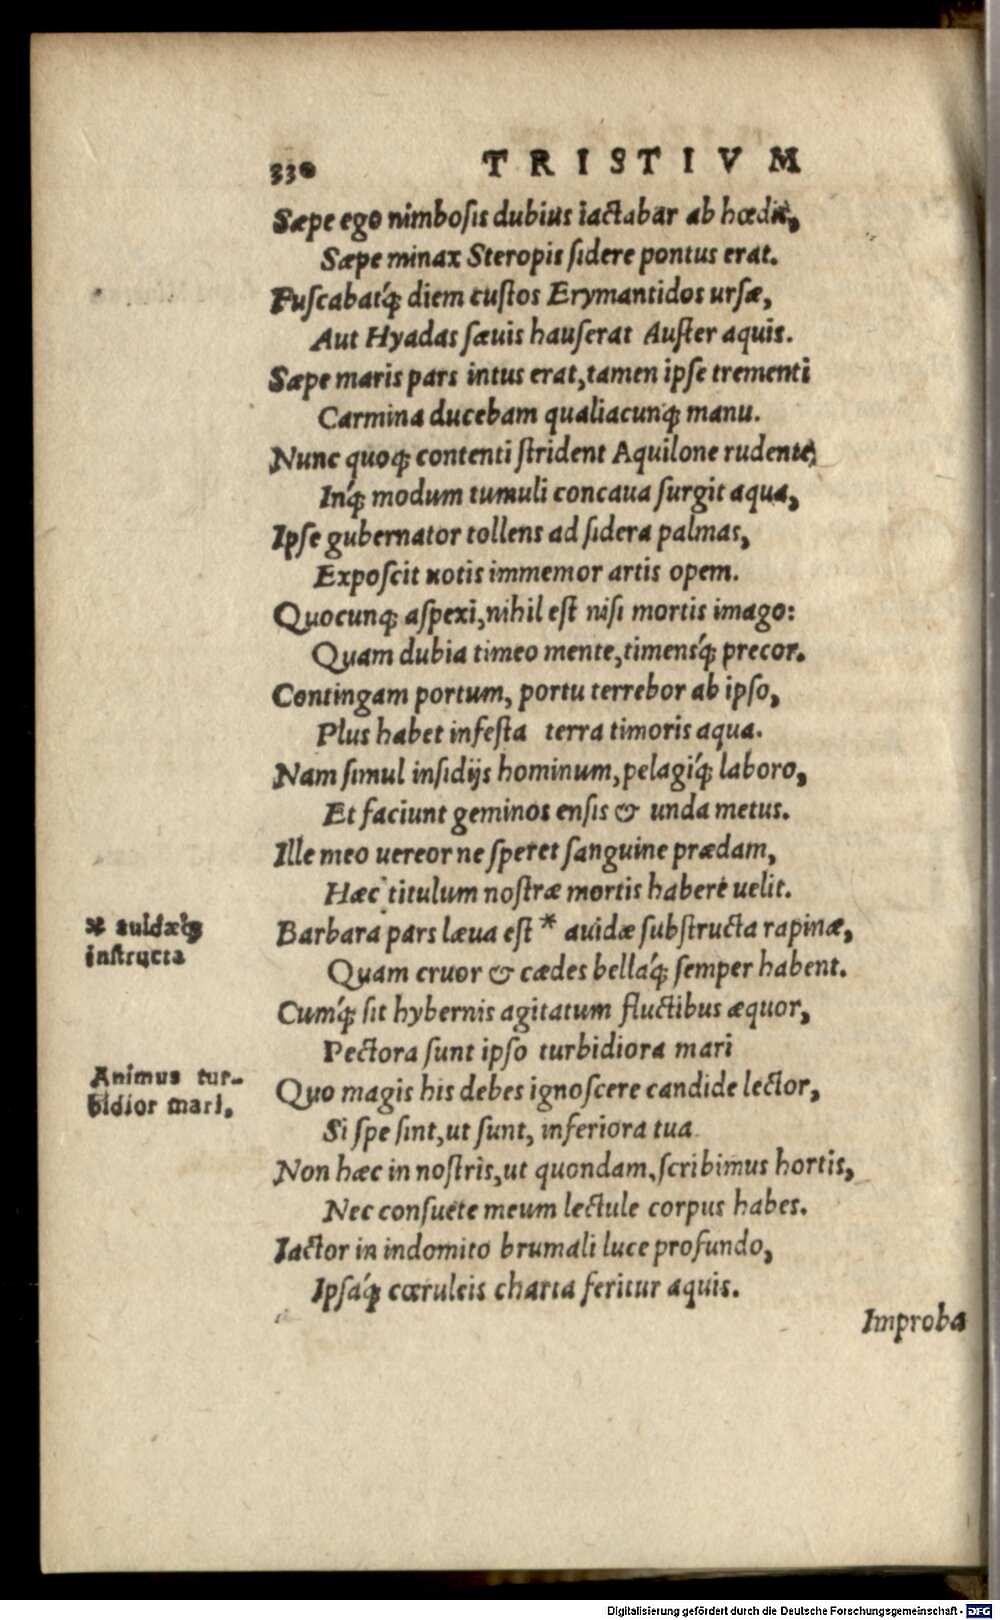 330 TRISTIVM
Sæpe ego nimbosis dubius iactabar ab hœdis,
Sæpe minax Steropis sidere pontus erat.
Fuscabatq́; diem custos Erymantidos ursæ,
Aut Hyadas sæuis hauserat Auster aquis.
Sæpe maris pars intus erat, tamen ipse trementi
Carmina ducebam qualiacunq; manu.
Nunc quoq; contenti strident Aquilone rudente,
Inq́; modum tumuli concaua surgit aqua,
Ipse gubernator tollens ad sidera palmas,
Exposcit uotis immemor artis opem.
Quocunq; aspexi, nihil est nisi mortis imago:
Quam dubia timeo mente, timensq́; precor.
Contingam portum, portu terrebor ab ipso,
Plus habet infesta terra timoris aqua.
Nam simul insidijs hominum, pelagiq́; laboro,
Et faciunt geminos ensis & unda metus.
Ille meo uereor ne speret sanguine prædam,
Hæc titulum nostræ mortis habere uelit.
* auidæq́;
instructa
Barbara pars læua est * auidæ substructa rapinæ,
Quam cruor & cædes bellaq́; semper habent.
Cumq́; sit hybernis agitatum fluctibus æquor,
Pectora sunt ipso turbidiora mari
Animus tur-
bidior mari.
Quo magis his debes ignoscere candide lector,
Si spe sint, ut sunt, inferiora tua.
Non hæc in nostris, ut quondam, scribimus hortis,
Nec consuete meum lectule corpus habes.
Iactor in indomito brumali luce profundo,
Ipsaq́; cœruleis charta feritur aquis.
Improba
Digitalisierung gefördert durch die Deutsche Forschungsgemeinschaft - DFG